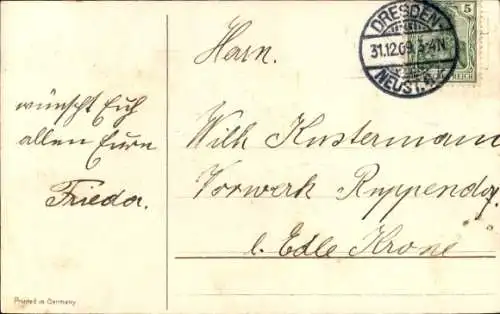 wünscht Euch
allen Eure
Frieda.
Herrn.
Wilh Kustermann
Vorwerk Ruppendg.
b. Edle Krone
DRESDEN-
31.12.09. 3-4N.
NEUST.
5
REICH
Printed in Germany